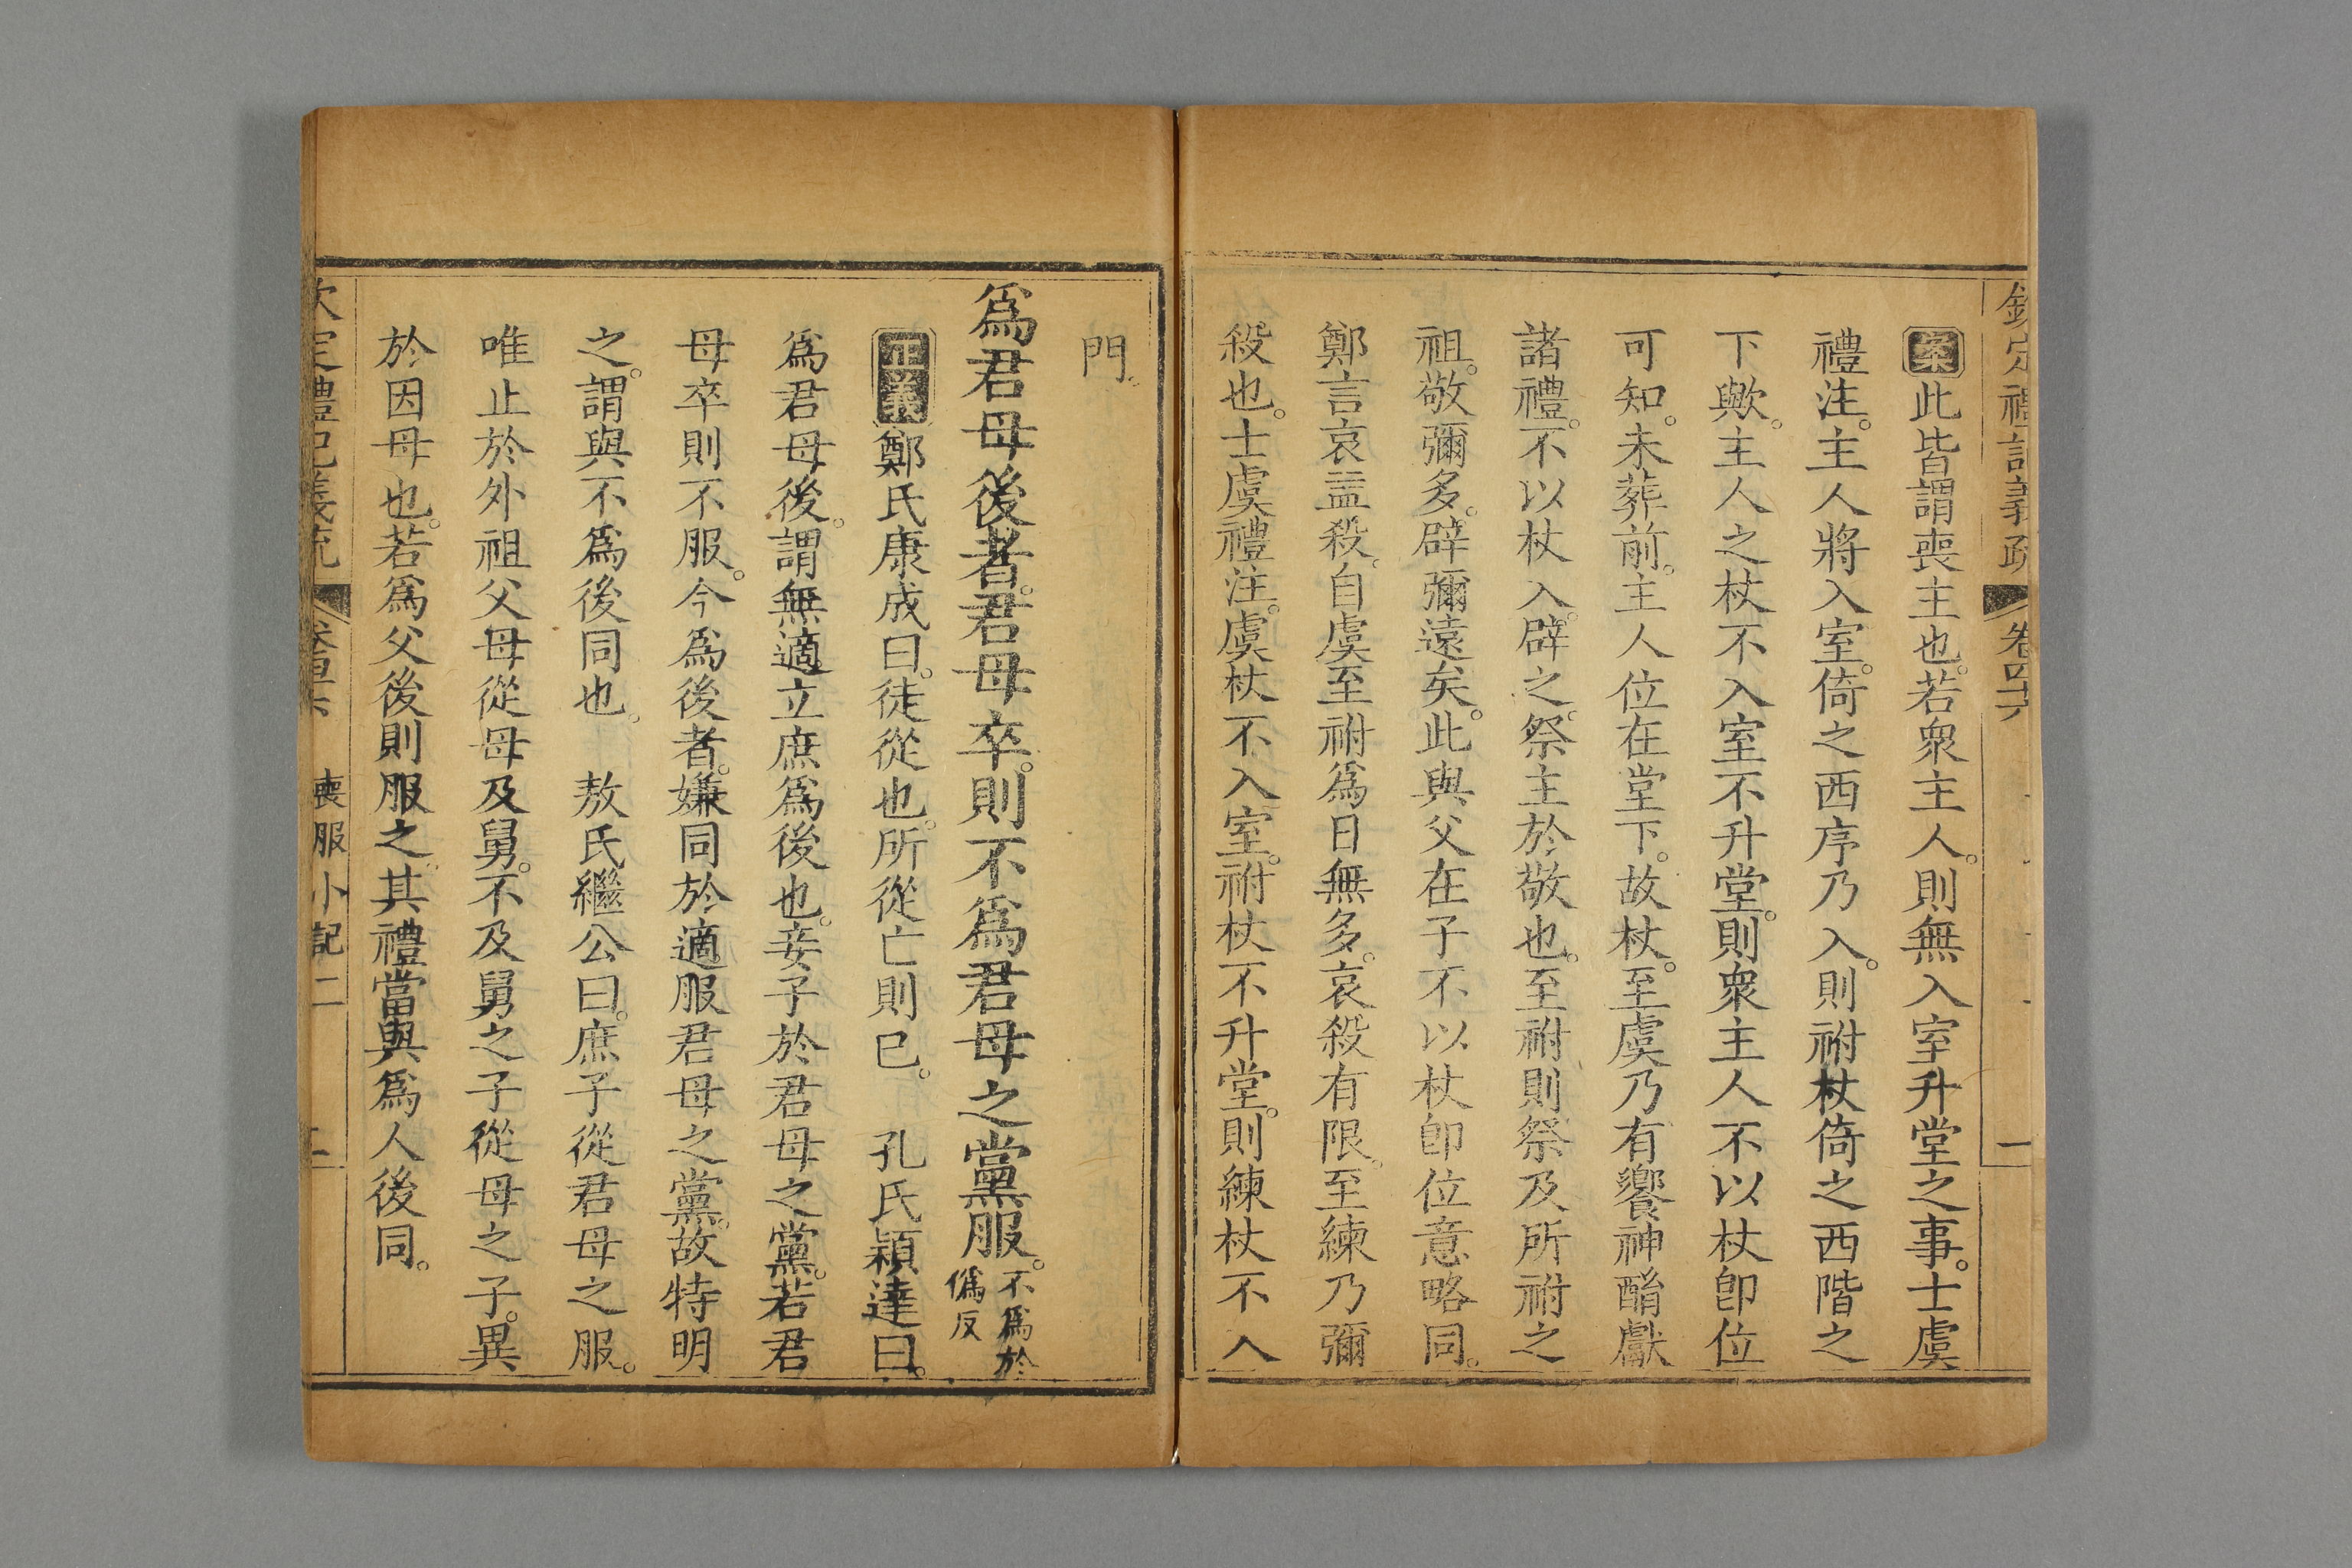 欽定禮記義疏 卷四十六 一
案此皆謂喪主也。若衆主人。則無入室升堂之事。士虞
禮注。主人將入室。倚之西序乃入。則祔杖倚之西階之
下歟。主人之杖不入室不升堂。則衆主人不以杖卽位
可知。未葬前。主人位在堂下。故杖。至虞乃有饗神酳獻
諸禮。不以杖入。辟之。祭主於敬也。至祔則祭及所祔之
祖。敬彌多。辟彌遠矣。此與父在子不以杖卽位意略同。
鄭言哀益殺。自虞至祔爲日無多。哀殺有限。至練乃彌
殺也。士虞禮注。虞杖不入室。祔杖不升堂。則練杖不入
門。
爲君母後者。君母卒。則不爲君母之黨服。不爲於僞反
正義鄭氏康成曰。徒從也。所從亡則已。 孔氏穎達曰。
爲君母後。謂無適立庶爲後也。妾子於君母之黨。若君
母卒則不服。今爲後者。嫌同於適服君母之黨。故特明
之。謂與不爲後同也。 敖氏繼公曰。庶子從君母之服。
唯止於外祖父母從母及舅。不及舅之子從母之子。異
於因母也。若爲父後則服之。其禮當與爲人後同。
欽定禮記義疏 卷四十六 喪服小記二 二